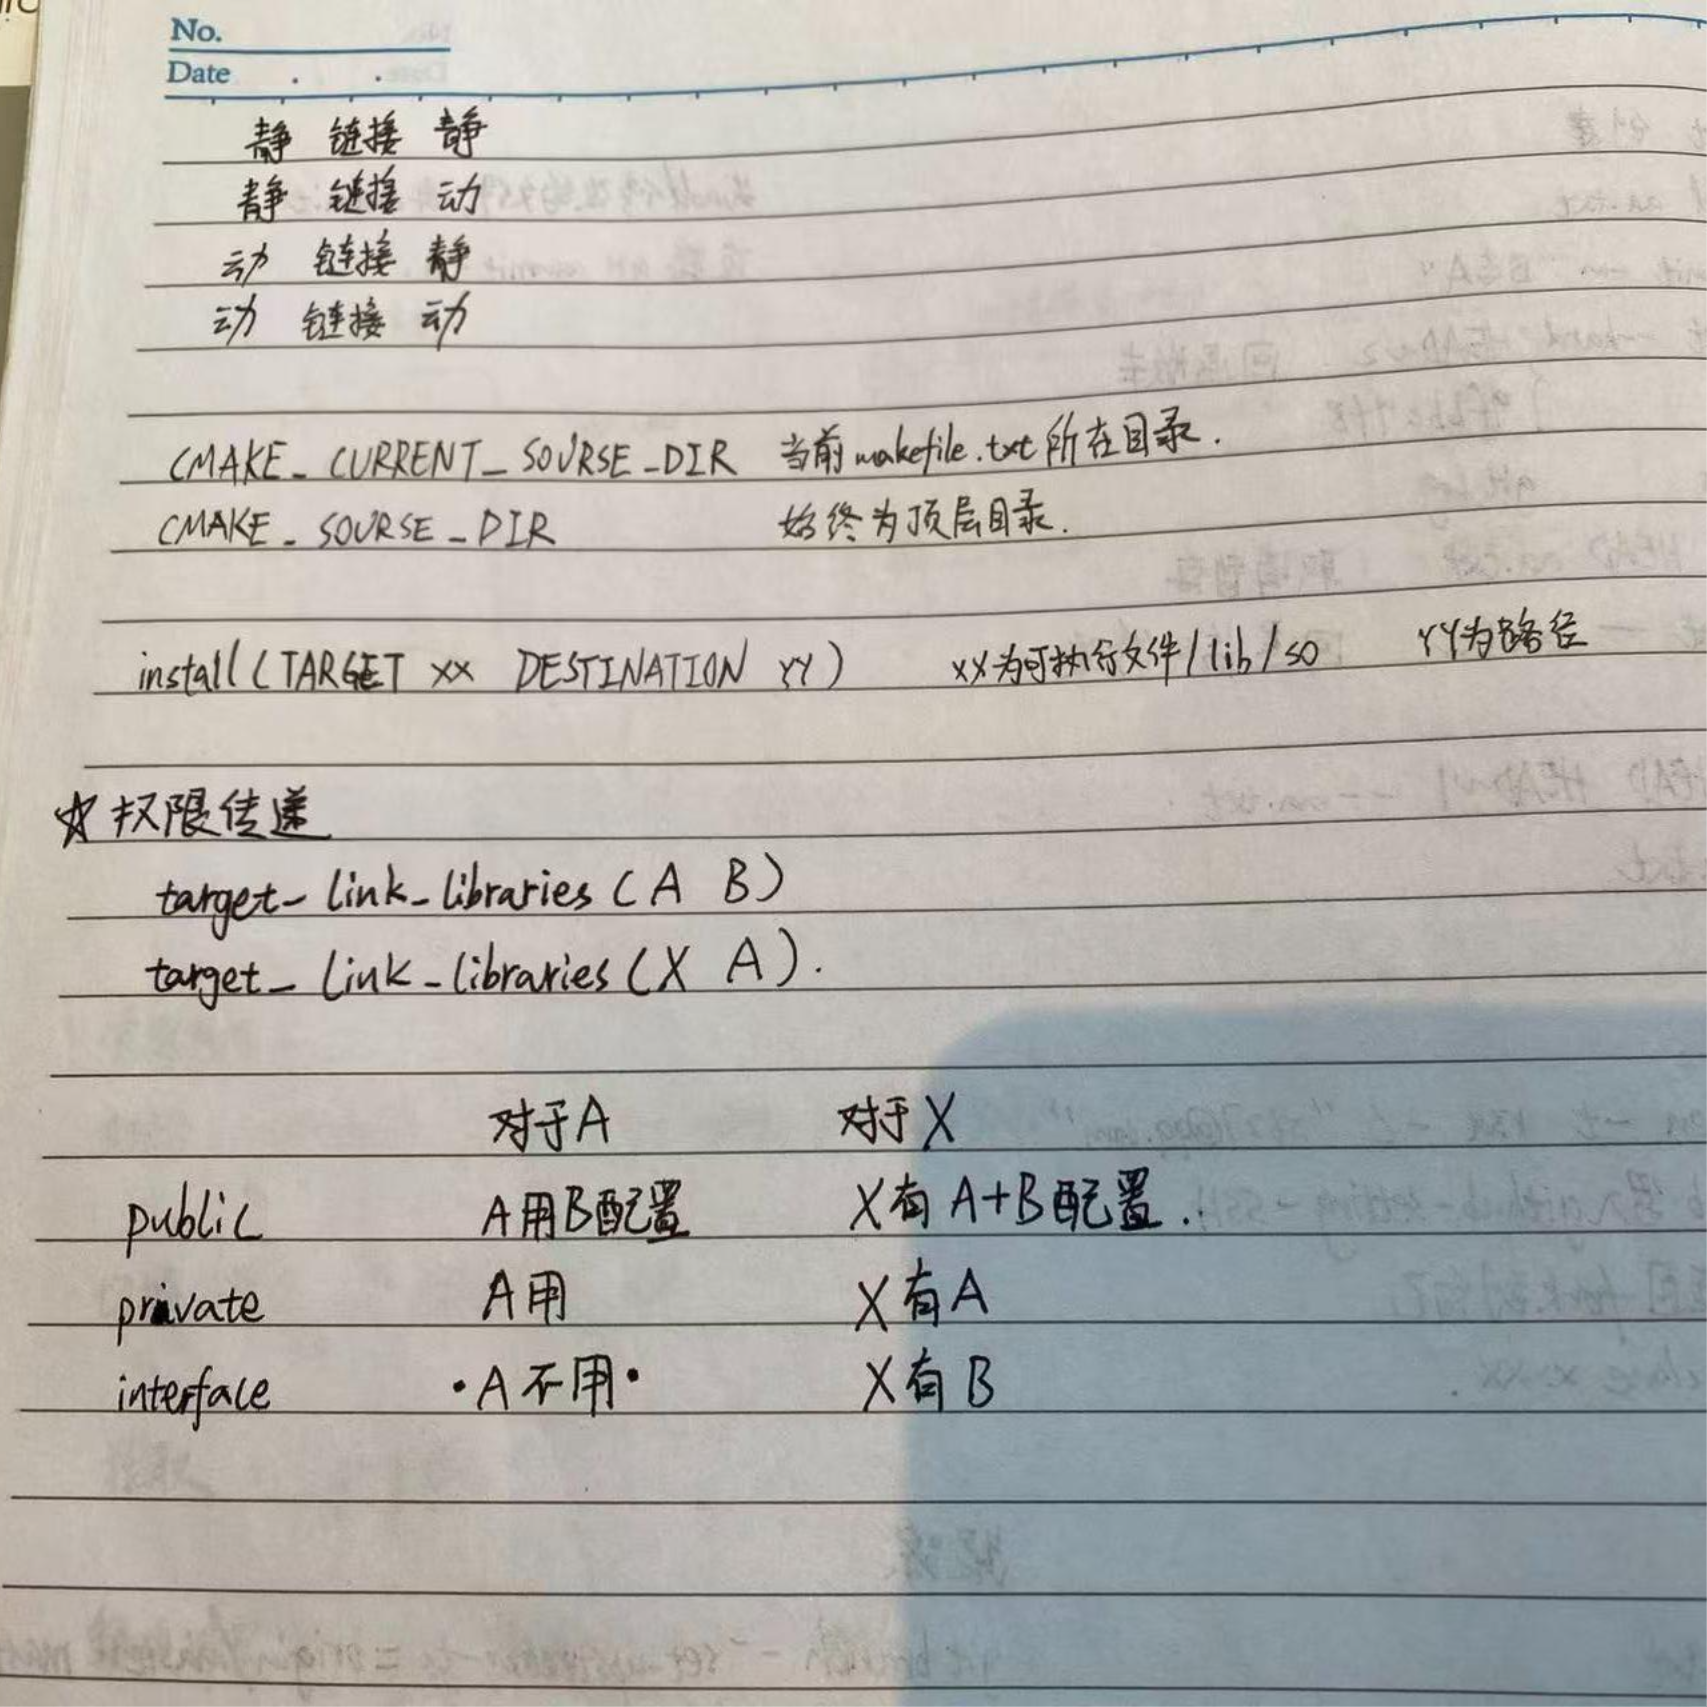 No.
Date . .
静 链接 静
静 链接 动
动 链接 静
动 链接 动
CMAKE_CURRENT_SOURSE_DIR 当前makefile.txt所在目录.
CMAKE_SOURSE_DIR 始终为顶层目录.
install(TARGET XX DESTINATION YY) XX为可执行文件/lib/so YY为路径
☆权限传递
target_link_libraries(A B)
target_link_libraries(X A).
对于A 对于X
public A用B配置 X有A+B配置.
private A用 X有A
interface ·A不用· X有B